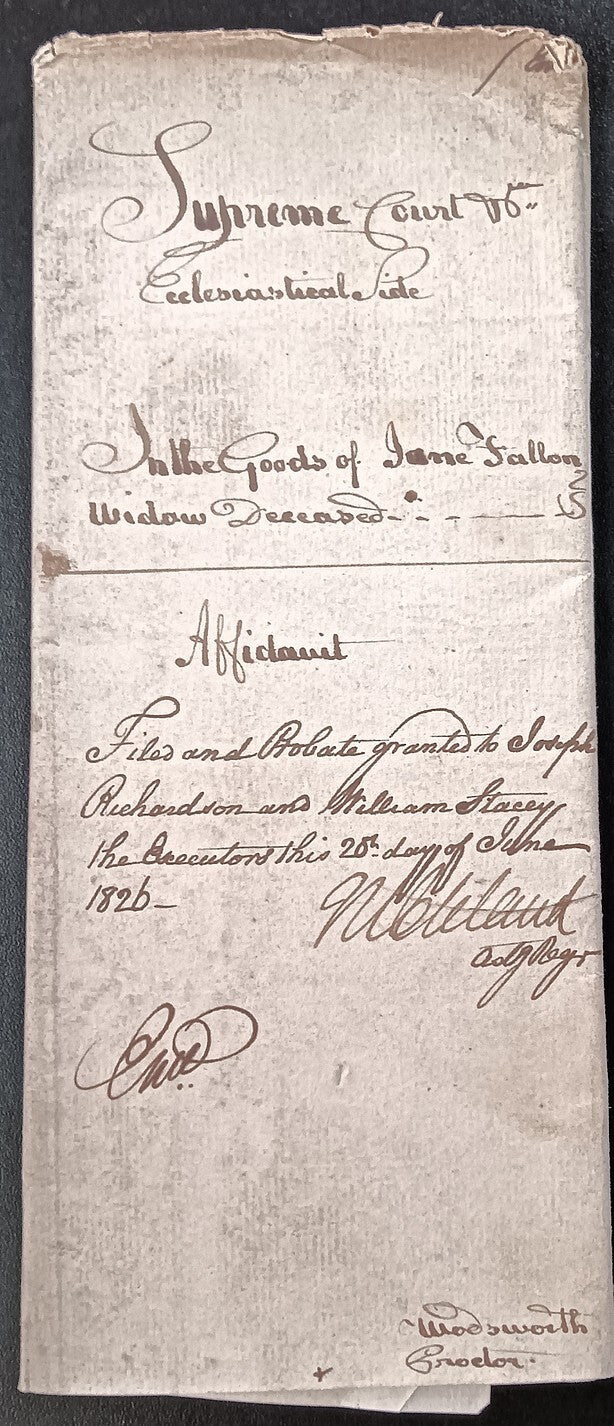 Supreme Court &ca
Ecclesiastical Side
In the Goods of Jane Fallon
Widow Deceased
Affidavit
Filed and Probate granted to Joseph
Richardson and William Stacey
the Executors this 20th day of June
1826
Actg Regr
Entd
Wodsworth
Proctor.